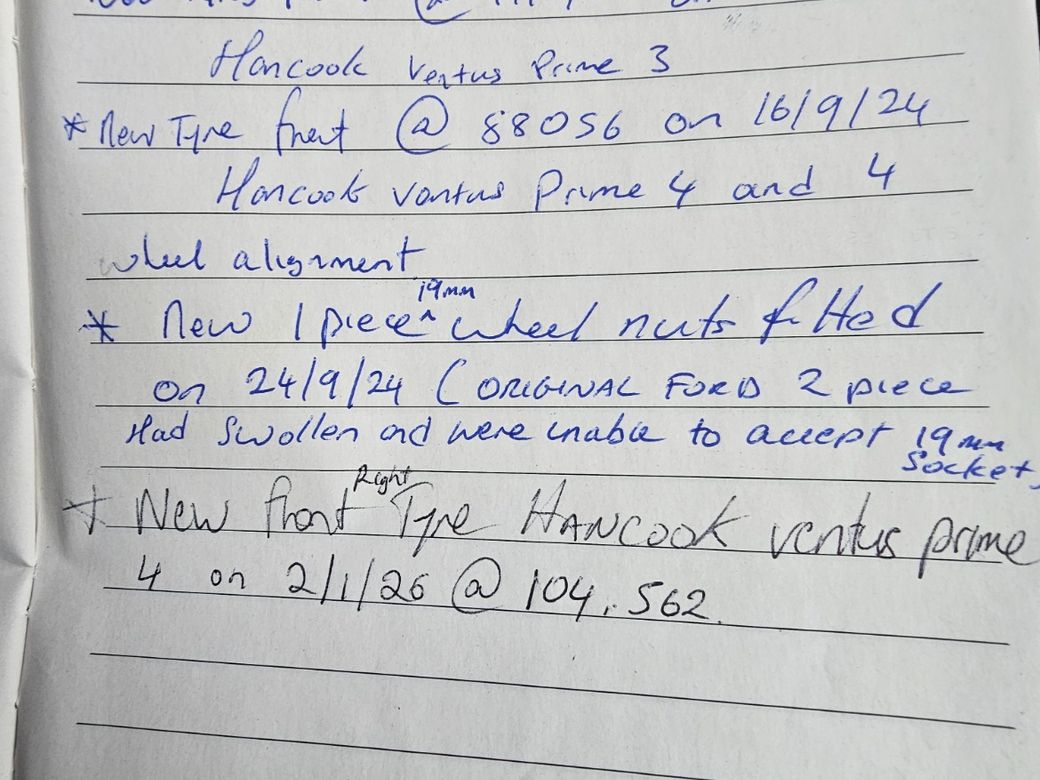 Hancook Ventus Prime 3
* New Tyre front @ 88056 on 16/9/24
Hancook Ventus Prime 4 and 4
wheel alignment
* New 1 piece ^ 19mm wheel nuts fitted
on 24/9/24 (ORIGINAL FORD 2 piece
Had Swollen and were unable to accept 19mm
Socket,
* New front Right Tyre HANCOOK ventus prime
4 on 2/1/26 @ 104,562.